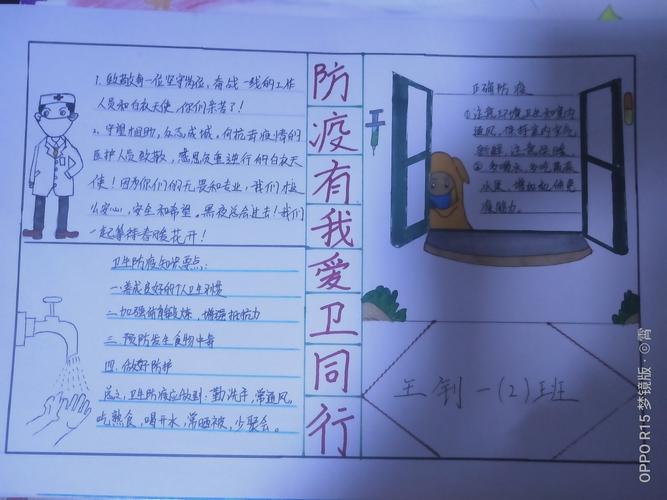 1. 致敬每一位坚守岗位,奋战一线的工作
人员和白衣天使,你们辛苦了!
2. 守望相助,众志成城,向抗击疫情的
医护人员致敬,感恩负重逆行的白衣天
使!因为你们的无畏和专业,我们才
安心,安全和希望。黑夜总会过去!我们
一起等待春暖花开!
卫生防疫知识要点:
一.养成良好的个人卫生习惯
二.加强体育锻炼,增强抵抗力
三.预防发生食物中毒
四.做好防护
总之,卫生防疫应做到:勤洗手,常通风,
吃熟食,喝开水,常晒被,少聚会。
防
疫
有
我
爱
卫
同
行
正确防疫
①注意环境卫生和室内
通风,保持室内空气
新鲜,注意保暖
②多喝水,多吃蔬菜
水果,增加机体免
疫能力。
王钊一(2)班
OPPO R15 梦镜版 · ©霄